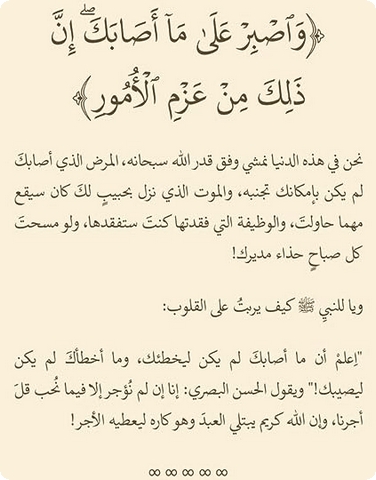 ﴿وَٱصۡبِرۡ عَلَىٰ مَآ أَصَابَكَۖ إِنَّ
ذَٰلِكَ مِنۡ عَزۡمِ ٱلۡأُمُورِ﴾
نحن في هذه الدنيا نمشي وفق قدر الله سبحانه، المرض الذي أصابكَ
لم يكن بإمكانك تجنبه، والموت الذي نزل بحبيبٍ لكَ كان سيقع
مهما حاولتَ، والوظيفة التي فقدتها كنتَ ستفقدها، ولو مسحتَ
كل صباحٍ حذاء مديرك!
ويا للنبيِ ﷺ كيف يربتُ على القلوب:
"اِعلمْ أن ما أصابكَ لم يكن ليخطئك، وما أخطأكَ لم يكن
ليصيبك!" ويقول الحسن البصري: إنا إن لم نُؤجر إلا فيما نُحب قلَ
أجرنا، وإن الله كريم يبتلي العبدَ وهو كاره ليعطيه الأجر!
∞ ∞ ∞ ∞ ∞